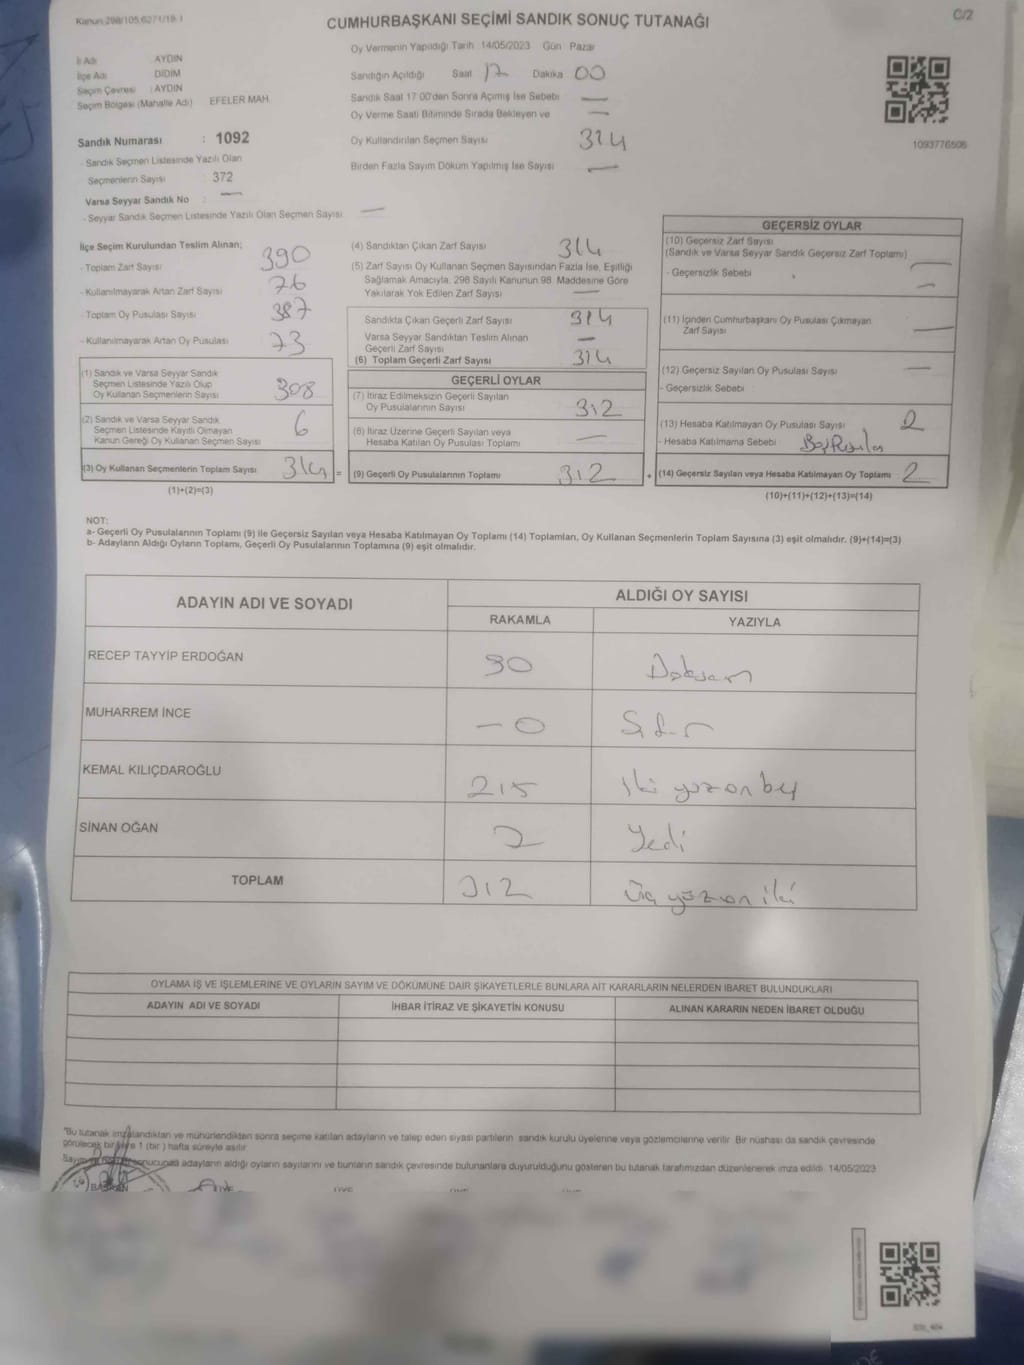 Kanun 298/105,6271/19-1
CUMHURBAŞKANI SEÇİMİ SANDIK SONUÇ TUTANAĞI
C/2
İl Adı AYDIN
İlçe Adı DİDİM
Seçim Çevresi : AYDIN
Seçim Bölgesi (Mahalle Adı) EFELER MAH.
Oy Vermenin Yapıldığı Tarih 14/05/2023 Gün Pazar
Sandığın Açıldığı Saat 17 Dakika 00
Sandık Saat 17:00'den Sonra Açılmış İse Sebebi —
Oy Verme Saati Bitiminde Sırada Bekleyen ve —
Oy Kullandırılan Seçmen Sayısı 314
Birden Fazla Sayım Döküm Yapılmış İse Sayısı —
1093776506
Sandık Numarası : 1092
- Sandık Seçmen Listesinde Yazılı Olan
Seçmenlerin Sayısı : 372
Varsa Seyyar Sandık No : —
- Seyyar Sandık Seçmen Listesinde Yazılı Olan Seçmen Sayısı —
İlçe Seçim Kurulundan Teslim Alınan;
- Toplam Zarf Sayısı 390
- Kullanılmayarak Artan Zarf Sayısı 76
- Toplam Oy Pusulası Sayısı 387
- Kullanılmayarak Artan Oy Pusulası 73
(1) Sandık ve Varsa Seyyar Sandık
Seçmen Listesinde Yazılı Olup
Oy Kullanan Seçmenlerin Sayısı 308
(2) Sandık ve Varsa Seyyar Sandık
Seçmen Listesinde Kayıtlı Olmayan
Kanun Gereği Oy Kullanan Seçmen Sayısı 6
(3) Oy Kullanan Seçmenlerin Toplam Sayısı 314 =
(1)+(2)=(3)
(4) Sandıktan Çıkan Zarf Sayısı 314
(5) Zarf Sayısı Oy Kullanan Seçmen Sayısından Fazla İse, Eşitliği
Sağlamak Amacıyla, 298 Sayılı Kanunun 98. Maddesine Göre
Yakılarak Yok Edilen Zarf Sayısı —
Sandıkta Çıkan Geçerli Zarf Sayısı 314
Varsa Seyyar Sandıktan Teslim Alınan
Geçerli Zarf Sayısı —
(6) Toplam Geçerli Zarf Sayısı 314
GEÇERLİ OYLAR
(7) İtiraz Edilmeksizin Geçerli Sayılan
Oy Pusulalarının Sayısı 312
(8) İtiraz Üzerine Geçerli Sayılan veya
Hesaba Katılan Oy Pusulası Toplamı —
(9) Geçerli Oy Pusulalarının Toplamı 312 +
GEÇERSİZ OYLAR
(10) Geçersiz Zarf Sayısı
(Sandık ve Varsa Seyyar Sandık Geçersiz Zarf Toplamı) —
- Geçersizlik Sebebi —
(11) İçinden Cumhurbaşkanı Oy Pusulası Çıkmayan
Zarf Sayısı —
(12) Geçersiz Sayılan Oy Pusulası Sayısı —
- Geçersizlik Sebebi
(13) Hesaba Katılmayan Oy Pusulası Sayısı 2
- Hesaba Katılmama Sebebi
(14) Geçersiz Sayılan veya Hesaba Katılmayan Oy Toplamı 2
(10)+(11)+(12)+(13)=(14)
NOT:
a- Geçerli Oy Pusulalarının Toplamı (9) ile Geçersiz Sayılan veya Hesaba Katılmayan Oy Toplamı (14) Toplamları, Oy Kullanan Seçmenlerin Toplam Sayısına (3) eşit olmalıdır. (9)+(14)=(3)
b- Adayların Aldığı Oyların Toplamı, Geçerli Oy Pusulalarının Toplamına (9) eşit olmalıdır.
ADAYIN ADI VE SOYADI
ALDIĞI OY SAYISI
RAKAMLA YAZIYLA
RECEP TAYYİP ERDOĞAN 90 Doksan
MUHARREM İNCE — 0 Sıfır
KEMAL KILIÇDAROĞLU 215 İki yüz on beş
SİNAN OĞAN 7 Yedi
TOPLAM 312 Üç yüz on iki
OYLAMA İŞ VE İŞLEMLERİNE VE OYLARIN SAYIM VE DÖKÜMÜNE DAİR ŞİKAYETLERLE BUNLARA AİT KARARLARIN NELERDEN İBARET BULUNDUKLARI
ADAYIN ADI VE SOYADI İHBAR İTİRAZ VE ŞİKAYETİN KONUSU ALINAN KARARIN NEDEN İBARET OLDUĞU
"Bu tutanak imzalandıktan ve mühürlendikten sonra seçime katılan adayların ve talep eden siyasi partilerin sandık kurulu üyelerine veya gözlemcilerine verilir. Bir nüshası da sandık çevresinde
görülecek bir yere 1 (bir) hafta süreyle asılır.
Sayım ve döküm sonucunda adayların aldığı oyların sayılarını ve bunların sandık çevresinde bulunanlara duyurulduğunu gösteren bu tutanak tarafımızdan düzenlenerek imza edildi. 14/05/2023
BAŞKAN ÜYE ÜYE ÜYE ÜYE